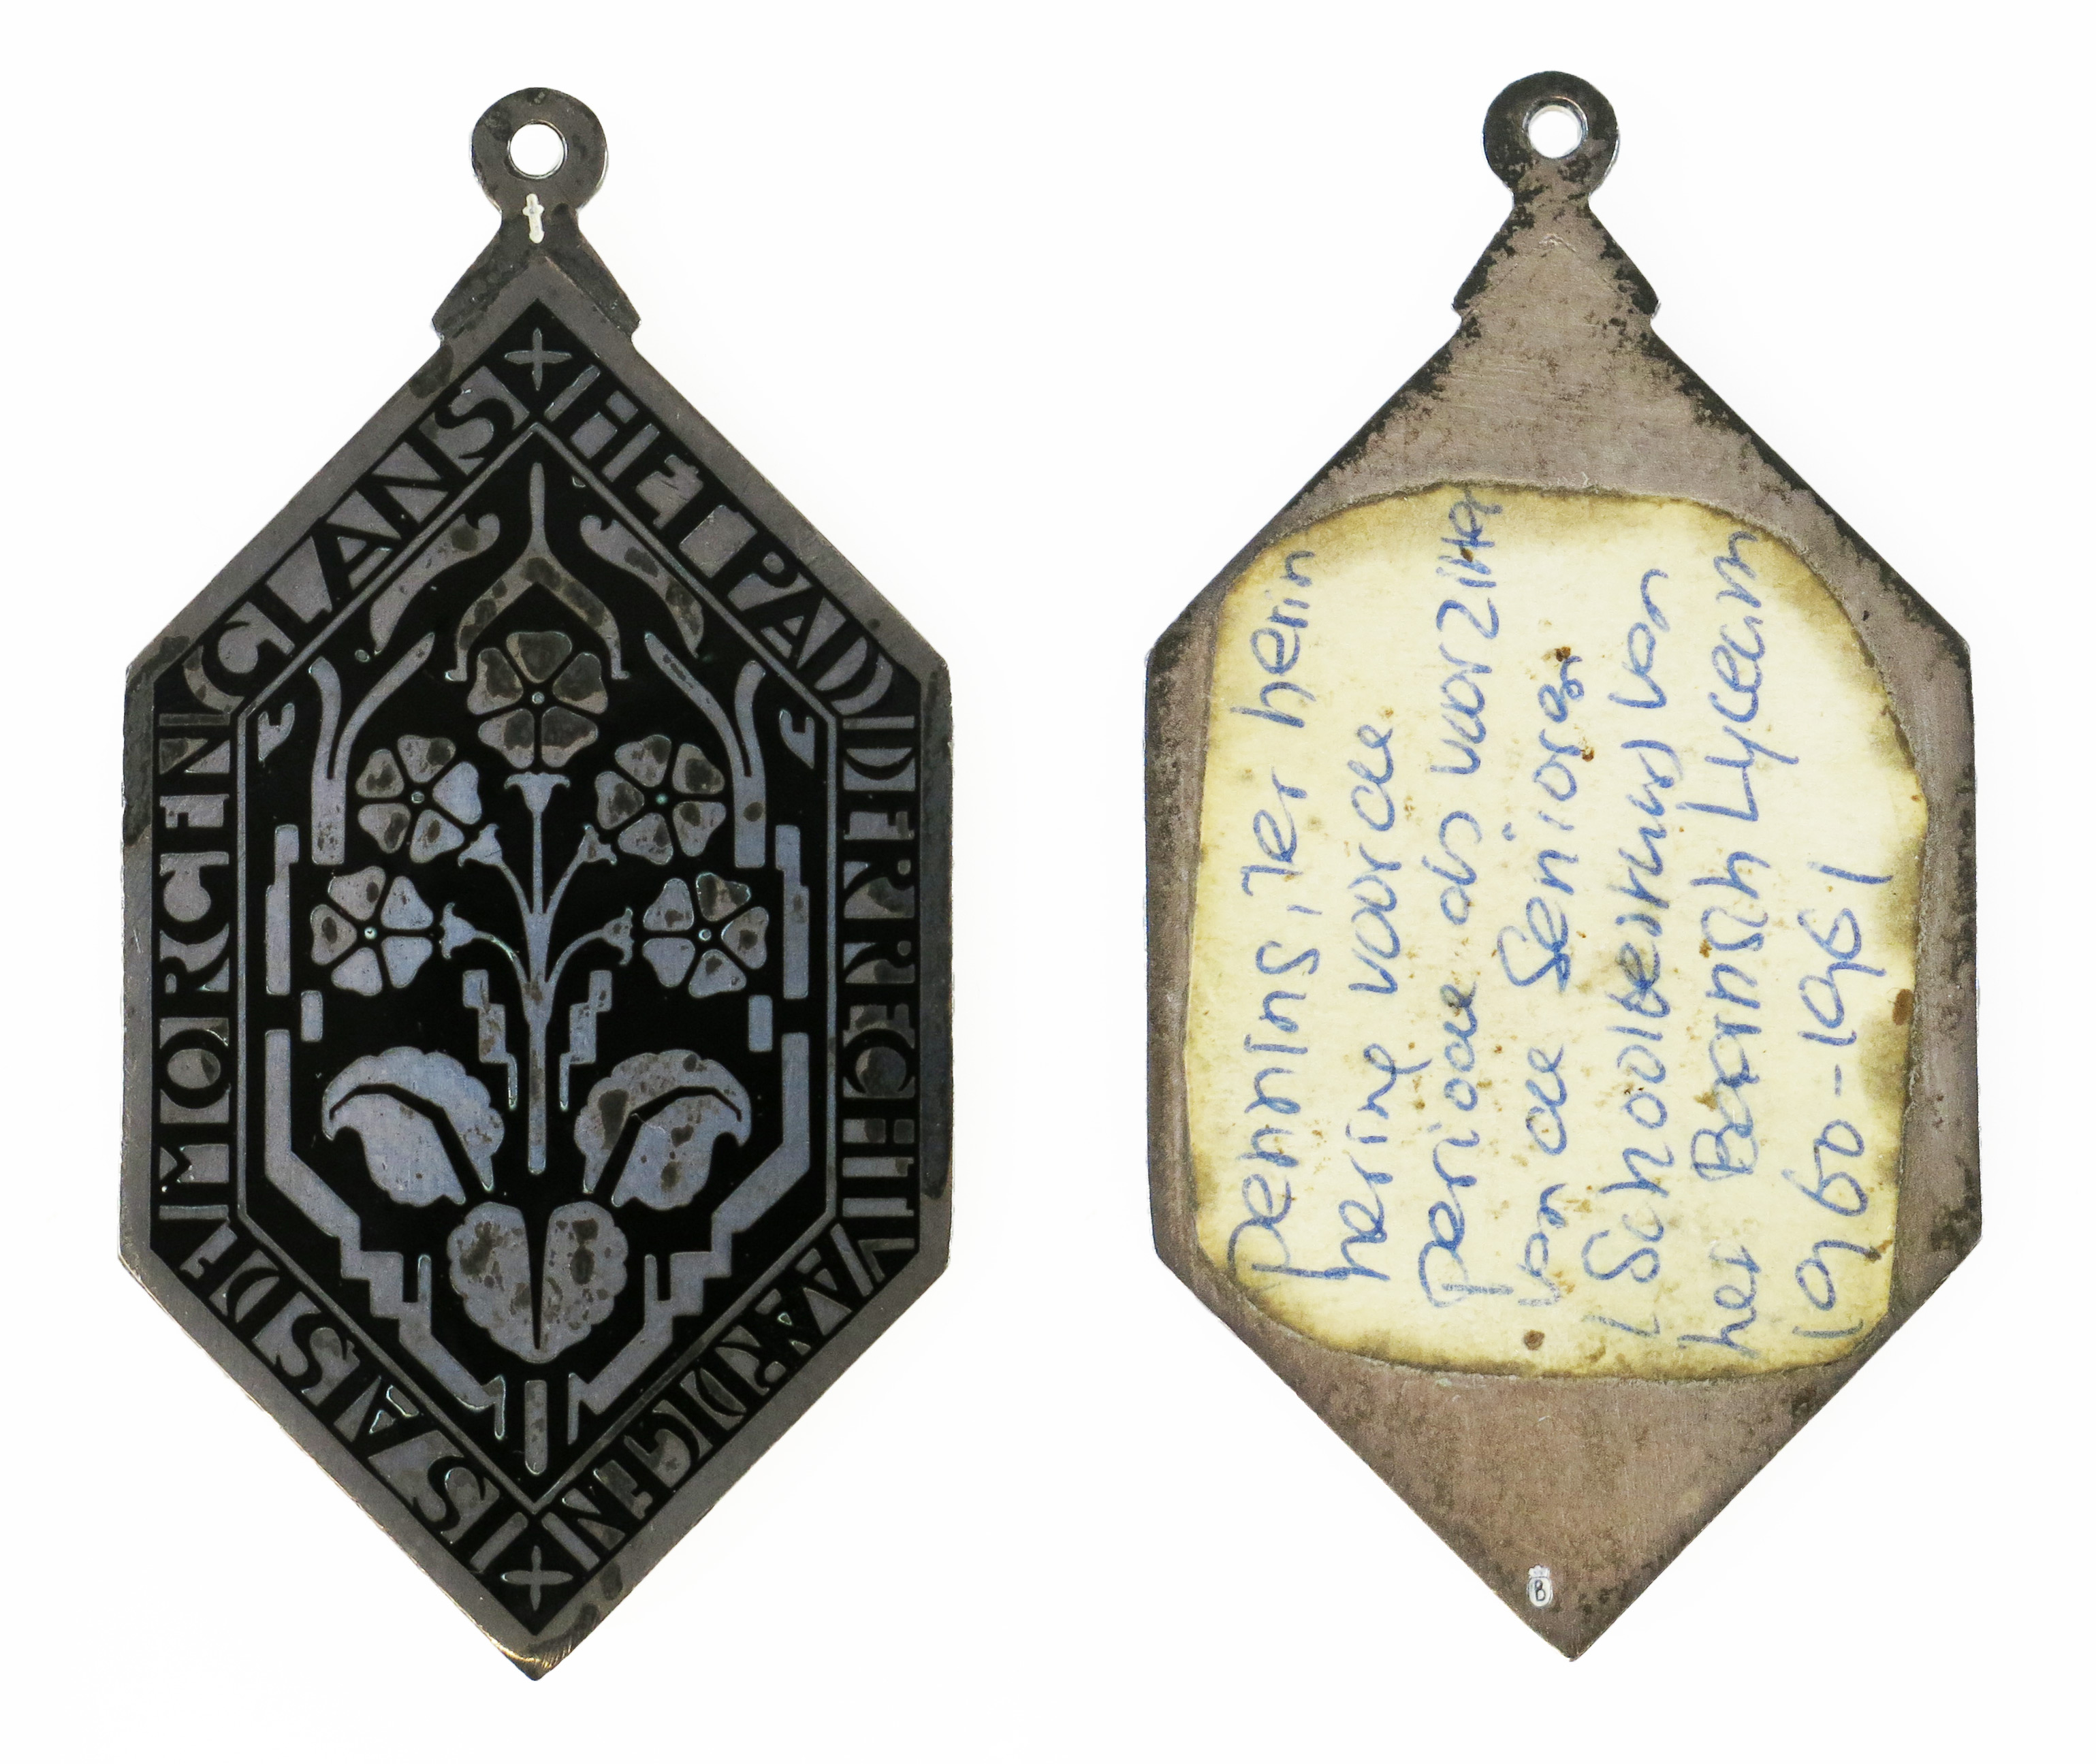 HET PAD DER RECHTVARDIGEN
IS ALS DE MORGENGLANS
Penning ter herin
nering voor de
periode als voorzitter
van de Senioren
(Schoolbestuur van
het Baarnsch Lyceum
1960-1961
B